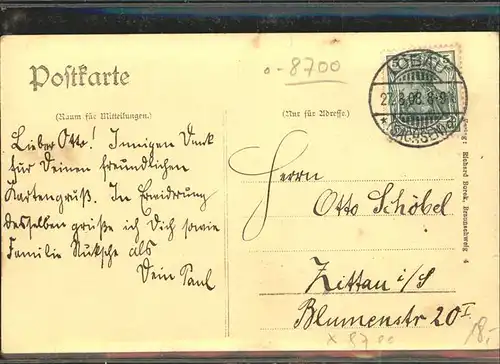 o-8700
Postkarte
(Raum für Mitteilungen.)
(Nur für Adresse.)
LÖBAU
27.8.08. 8-9
(SACHSEN)
5
Lieber Otto! Innigen Dank
für Deinen freundlichen
Kartengruß. In Erwiderung
desselben grüße ich Dich sowie
Familie als
Dein Paul
Herrn
Otto Schöbel
Zittau i/S
Blumenstr 20 I
x 8700
18,-
Verlag: Richard Borek, Braunschweig 4